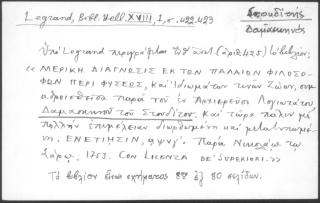 Legrand, Bibl. Hell. XVIII, I, σ. 422.423
Σπουδίτης
Δαμασκηνός
Ὑπὸ Legrand περιγράφεται (ἀριθ. 425) τὸ βιβλίον:
« ΜΕΡΙΚΗ ΔΙΑΓΝΩΣΙΣ ΕΚ ΤΩΝ ΠΑΛΑΙΩΝ ΦΙΛΟΣΟ-
ΦΩΝ ΠΕΡΙ ΦΥΣΕΩΣ, καὶ ἰδιωμάτων τινων Ζώων, συν-
αθροισθεῖσα παρὰ τοῦ ἐν Ἀρχιερεῦσι Λογιωτάτου
Δαμασκηνοῦ τοῦ Στουδίτου. Καὶ τώρα πάλιν με
πολλὴν ἐπιμέλειαν διωρθωμένη καὶ μετατυπωμέ-
νη. ΕΝΕΤΙΗΣΙΝ, αψνγ΄. Παρὰ Νικολάῳ τῷ
Σάρῳ. 1753. CON LICENZA DE' SUPERIORI. »
Τὸ βιβλίον εἶναι σχήματος 8ον ἐξ 80 σελίδων.